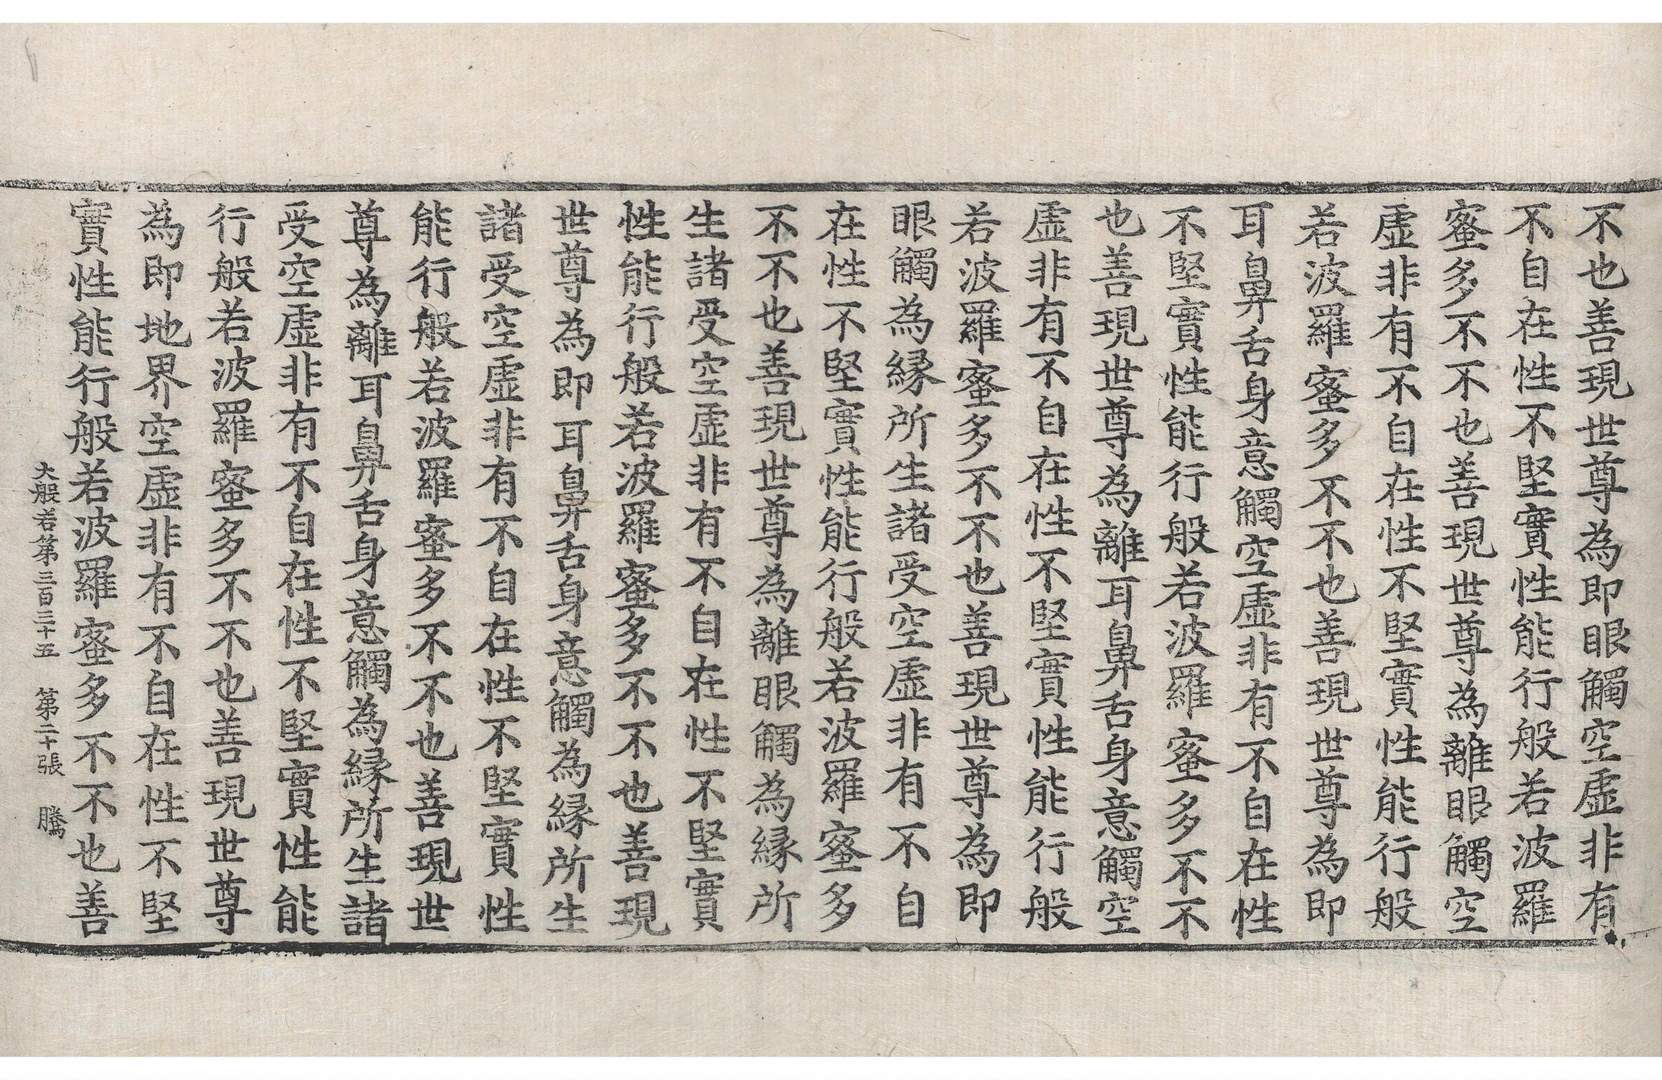 不也善現世尊為即眼觸空虛非有
不自在性不堅實性能行般若波羅
蜜多不不也善現世尊為離眼觸空
虛非有不自在性不堅實性能行般
若波羅蜜多不不也善現世尊為即
耳鼻舌身意觸空虛非有不自在性
不堅實性能行般若波羅蜜多不不
也善現世尊為離耳鼻舌身意觸空
虛非有不自在性不堅實性能行般
若波羅蜜多不不也善現世尊為即
眼觸為縁所生諸受空虛非有不自
在性不堅實性能行般若波羅蜜多
不不也善現世尊為離眼觸為縁所
生諸受空虛非有不自在性不堅實
性能行般若波羅蜜多不不也善現
世尊為即耳鼻舌身意觸為縁所生
諸受空虛非有不自在性不堅實性
能行般若波羅蜜多不不也善現世
尊為離耳鼻舌身意觸為縁所生諸
受空虛非有不自在性不堅實性能
行般若波羅蜜多不不也善現世尊
為即地界空虛非有不自在性不堅
實性能行般若波羅蜜多不不也善
大般若第三百三十五 第二十張 騰